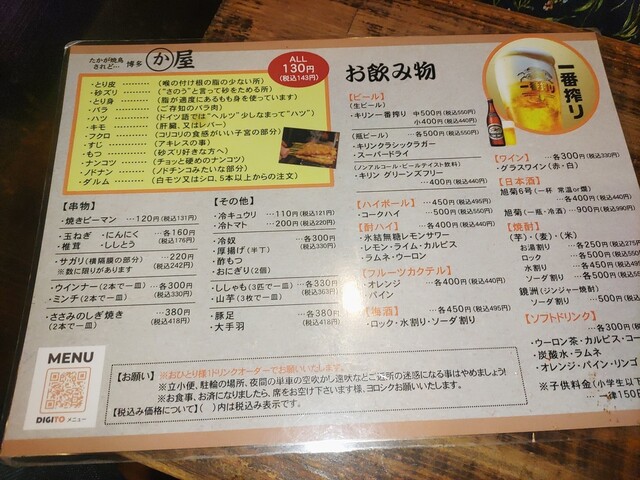 たかが焼鳥
されど…
博多 か 屋
ALL
130円
(税込143円)
・とり皮 ……… (喉の付け根の脂の少ない所)
・砂ズリ ……… (“さのう”と言って砂をためる所)
・とり身 ……… (脂が適度にあるもも身を使っています)
・バラ ……… (ご存知のバラ肉)
・ハツ ……… (ドイツ語では“ヘルツ”少しなまって“ハツ”)
・キモ ……… (肝臓、又はレバー)
・フクロ ……… (コリコリの食感がいい子宮の部分)
・すじ ……… (アキレスの事)
・もつ ……… (砂ズリ好きな方へ)
・ナンコツ ……… (チョッと硬めのナンコツ)
・ノドナン ……… (ノドチンコみたいな部分)
・ダルム ……… (白モツ又はシロ、5本以上からの注文)
【串物】
・焼きピーマン …120円(税込131円)
・玉ねぎ ・にんにく
・椎茸 ・ししとう
各160円
(税込176円)
・サガリ(横隔膜の部分)
※数に限りがあります
…220円
(税込242円)
・ウインナー(2本で一皿)
・ミンチ(2本で一皿)
…各300円
(税込330円)
・ささみのしぎ焼き
(2本で一皿)
……380円
(税込418円)
【その他】
・冷キュウリ …110円(税込121円)
・冷トマト ……200円(税込220円)
・冷奴
・厚揚げ(半丁)
・酢もつ
・おにぎり(2個)
各300円
(税込330円)
・ししゃも(3匹で一皿)
・山芋(3枚で一皿)
…各330円
(税込363円)
・豚足
・大手羽
……各380円
(税込418円)
お飲み物
【ビール】
(生ビール)
・キリン一番搾り 中500円(税込550円)
小400円(税込440円)
(瓶ビール) ……各500円(税込550円)
・キリンクラシックラガー
・スーパードライ
(ノンアルコール・ビールテイスト飲料)
・キリン グリーンズフリー
……400円(税込440円)
【ハイボール】 ……450円(税込495円)
・コークハイ ……500円(税込550円)
【酎ハイ】 ……各400円(税込440円)
・氷結無糖レモンサワー
・レモン・ライム・カルピス
・ラムネ・ウーロン
【フルーツカクテル】
・オレンジ
・パイン
……各400円(税込440円)
【梅酒】 ……各450円(税込495円)
・ロック・水割り・ソーダ割り
一番搾り
【ワイン】 ……各300円(税込330円)
・グラスワイン(赤・白)
【日本酒】
旭菊6号(一杯 常温or燗)
……各400円(税込440円)
旭菊(一瓶・冷酒) ……900円(税込990円)
【焼酎】
(芋)・(麦)・(米)
お湯割り ……各250円(税込275
ロック ……各500円(税込550
水割り ……各450円(税込495
ソーダ割り ……各500円(税込550
鏡洲(ジンジャー焼酎)
ソーダ割り ……500円(税込
【ソフトドリンク】
……各300円(税込
・ウーロン茶・カルピス・コー
・炭酸水・ラムネ
・オレンジ・パイン・リンゴ
※子供料金(小学生以下
一律150
MENU
DIGITO メニュー
【お願い】 ※おひとり様1ドリンクオーダーでお願いいたします。
※立小便、駐輪の場所、夜間の単車の空吹かし遠吠などご近所の迷惑になる事はやめましょう!
※お食事、お済になりましたら、席をお空け下さいます様、ヨロシクお願いいたします。
【税込み価格について】( )内は税込み表示です。